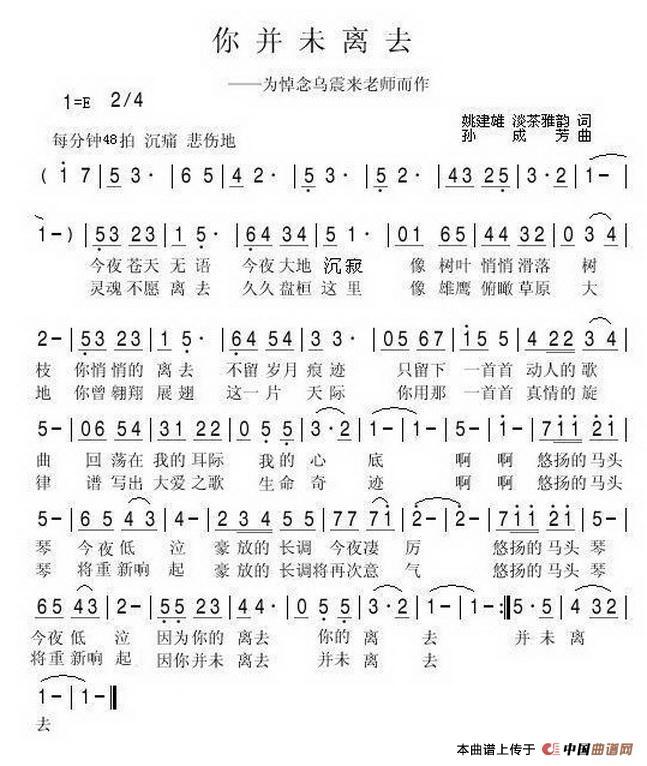 你并未离去
——为悼念乌震来老师而作
1=E 2/4
姚建雄 淡茶雅韵 词
孙成芳 曲
每分钟48拍 沉痛 悲伤地
( i 7 | 5 3· | 6 5 | 4 2· | 5 3· | 5 2· | 43 25 | 3· 2 | 1- |
1- ) | 53 23 | 1 5· | 64 34 | 5 1· | 01 65 | 44 32 | 0 34 |
今夜苍天 无语 今夜大地 沉寂 像 树叶 悄悄滑落 树
灵魂不愿 离去 久久盘桓 这里 像 雄鹰 俯瞰草原 大
2- | 53 23 | 1 5· | 64 54 | 3 3· | 05 67 | i5 55 | 4 22 3 |
枝 你悄悄的 离去 不留岁月 痕迹 只留下 一首首 动人的歌
地 你曾翱翔 展翅 这一片 天际 你用那 一首首 真情的旋
5- | 06 54 | 31 22 | 0 5 5 | 3·2 | 1- | 1- | 5- | 2- | 7ii 2i |
曲 回荡在 我的耳际 我的 心 底 啊 啊 悠扬的马头
律 谱写出 大爱之歌 生命 奇 迹 啊 啊 悠扬的马头
5- | 6 5 4 3 | 4- | 2 3 4 5 | 77 7i | 2- | 2- | 7ii 2i | 5- |
琴 今夜低 泣 豪放的长调 今夜凄 厉 悠扬的马头 琴
琴 将重新响 起 豪放的长调将再次意 气 悠扬的马头 琴
65 43 | 2- | 55 23 | 44· | 0 5 5 | 3·2 | 1- | 1- :‖ 5· 5 | 4 32 |
今夜低 泣 因为你的 离去 你的 离 去 并未 离
将重新响 起 因你并未 离去 并未 离 去
1- | 1- ‖
去
本曲谱上传于 中国曲谱网